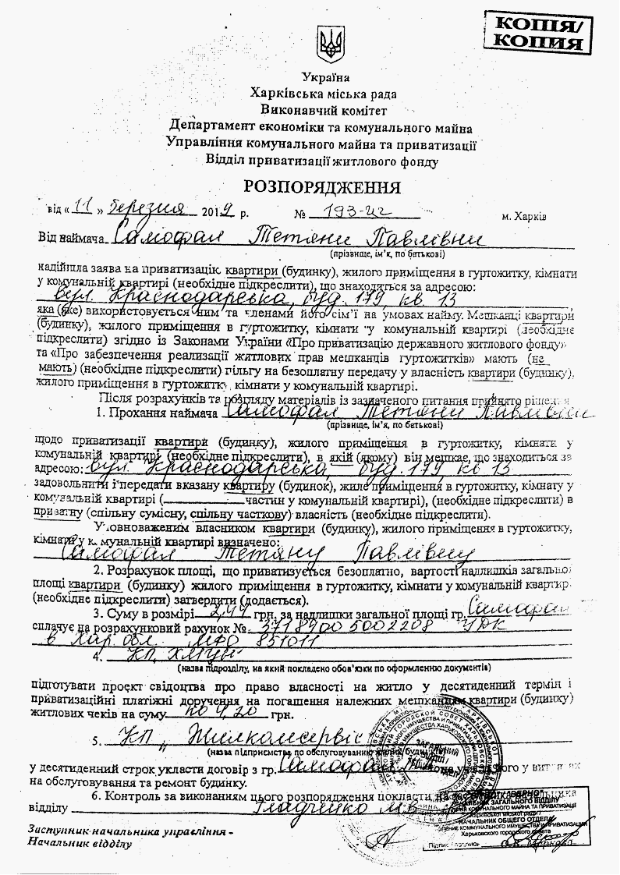 КОПІЯ/
КОПИЯ
Україна
Харківська міська рада
Виконавчий комітет
Департамент економіки та комунального майна
Управління комунального майна та приватизації
Відділ приватизації житлового фонду
РОЗПОРЯДЖЕННЯ
від « 11 » березня 2019 р. № 193-и2 м. Харків
Від наймача Самофал Тетяни Павлівни
(прізвище, ім'я, по батькові)
надійшла заява на приватизацію квартири (будинку), жилого приміщення в гуртожитку, кімнати
у комунальній квартирі (необхідне підкреслити), що знаходиться за адресою:
вул. Краснодарська, буд. 179, кв. 13
яка (яке) використовується ним та членами його сім'ї на умовах найму. Мешканці квартири
(будинку), жилого приміщення в гуртожитку, кімнати у комунальній квартирі (необхідне
підкреслити) згідно із Законами України «Про приватизацію державного житлового фонду»
та «Про забезпечення реалізації житлових прав мешканців гуртожитків» мають (не
мають) (необхідне підкреслити) пільгу на безоплатну передачу у власність квартири (будинку),
жилого приміщення в гуртожитку, кімнати у комунальній квартирі.
Після розрахунків та розгляду матеріалів із зазначеного питання прийнято рішення
1. Прохання наймача Самофал Тетяни Павлівни
(прізвище, ім'я, по батькові)
щодо приватизації квартири (будинку), жилого приміщення в гуртожитку, кімнати у
комунальній квартирі (необхідне підкреслити), в якій (якому) він мешкає, що знаходиться за
адресою: вул. Краснодарська буд. 179 кв 13
задовольнити і передати вказану квартиру (будинок), жиле приміщення в гуртожитку, кімнату у
комунальній квартирі ( частин у комунальній квартирі), (необхідне підкреслити) в
приватну (спільну сумісну, спільну часткову) власність (необхідне підкреслити).
Уповноваженим власником квартири (будинку), жилого приміщення в гуртожитку,
кімнати у комунальній квартирі визначено:
Самофал Тетяну Павлівну
2. Розрахунок площі, що приватизується безоплатно, вартості надлишків загальної
площі квартири (будинку) жилого приміщення в гуртожитку, кімнати у комунальній квартирі
(необхідне підкреслити) затвердити (додається).
3. Суму в розмірі грн. за надлишки загальної площі гр. Самофал
сплачує на розрахунковий рахунок № 37189005002208 УДК
в Хар. обл. МФО 851011
4. КП
(назва підрозділу, на який покладено обов'язки по оформленню документів)
підготувати проект свідоцтва про право власності на житло у десятиденний термін і
приватизаційні платіжні доручення на погашення належних мешканцям квартири (будинку)
житлових чеків на суму по 4,20 грн.
5. КП „Жилкомсервіс"
(назва підприємства по обслуговуванню
у десятиденний строк укласти договір з гр. Самофал
на обслуговування та ремонт будинку.
6. Контроль за виконанням цього розпорядження покласти на
відділу Гладченко М.В.
Заступник начальника управління -
Начальник відділу
НАЧАЛЬНИК ЗАГАЛЬНОГО ВІДДІЛУ
НАЧАЛЬНИК ОБЩЕГО ОТДЕЛА
Харьковского городского совета